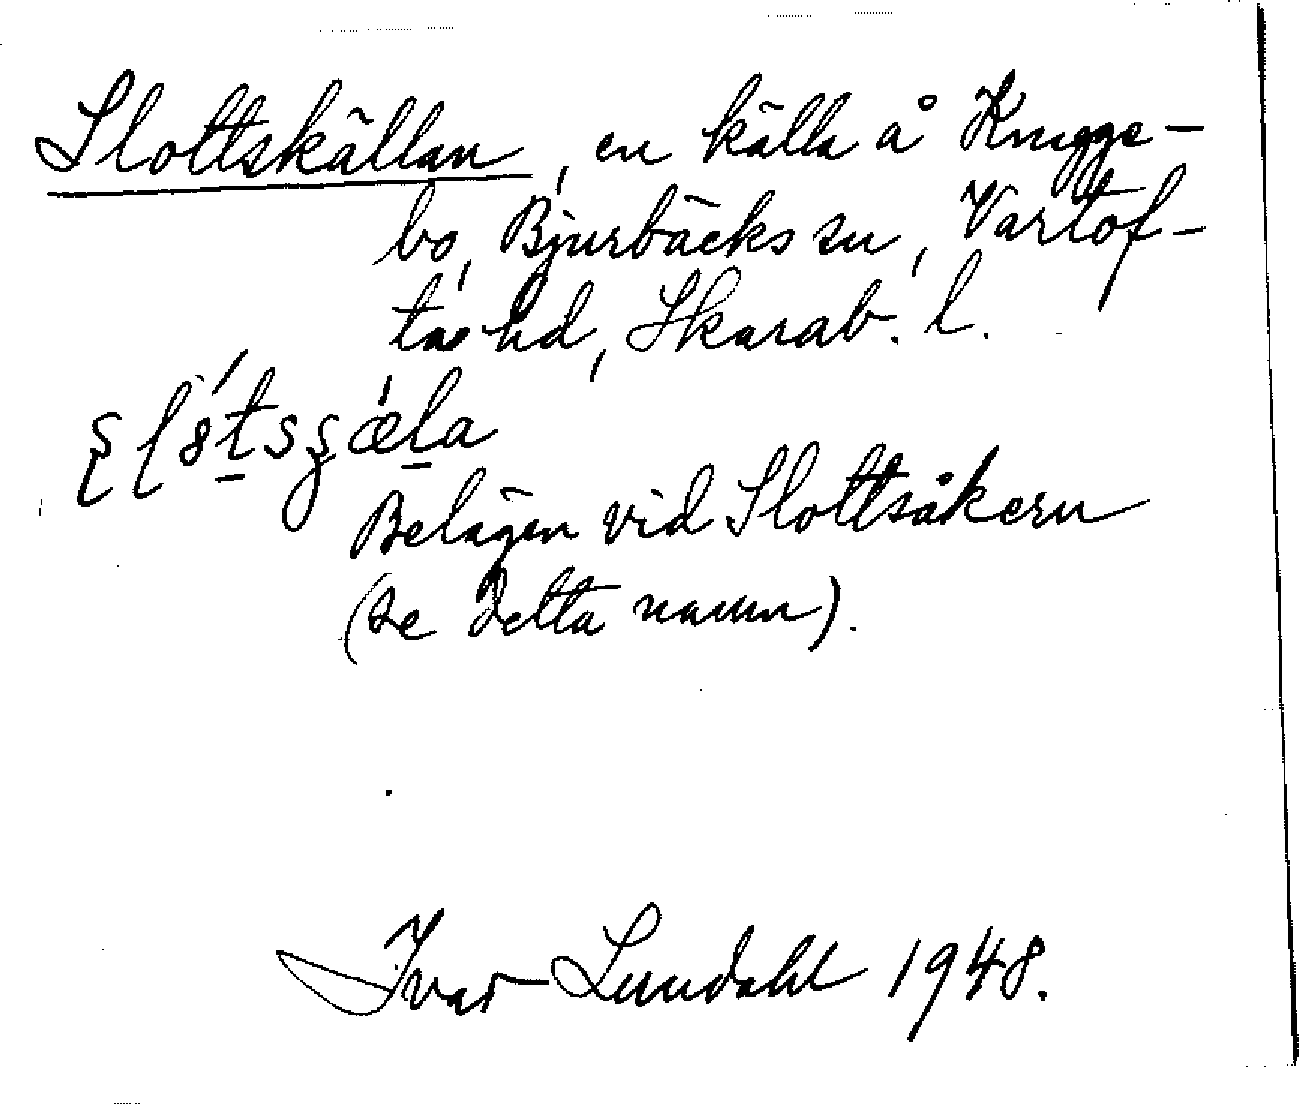 Slottskällan, en källa å Knagge-
bo, Bjurbäcks sn, Vartof-
ta hd, Skarab. l.
Belägen vid Slottsåkern
(se detta namn).
Ivar Lundahl 1948.